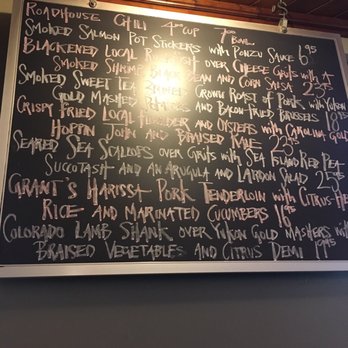 ROADHOUSE CHILI 4.00 CUP 7.00 BOWL
SMOKED SALMON POT STICKERS WITH PONZU SAUCE 6.95
BLACKENED LOCAL OVER CHEESE GRITS WITH A
SMOKED SHRIMP, BLACK BEAN AND CORN SALSA 23.95
SMOKED SWEET TEA CROWN ROAST OF PORK WITH YUKON
GOLD MASHED AND BACON FRIED BRUSSELS 18.95
CRISPY FRIED LOCAL FLOUNDER AND OYSTERS WITH CAROLINA GOLD
HOPPIN JOHN AND BRAISED KALE 23.95
SEARED SEA SCALLOPS OVER GRITS WITH SEA ISLAND RED PEA
SUCCOTASH AND AN ARUGULA AND LARDON SALAD 25.95
GRANT'S HARISSA PORK TENDERLOIN WITH CITRUS-HERB
RICE AND MARINATED CUCUMBERS
COLORADO LAMB SHANK OVER YUKON GOLD MASHERS WITH
BRAISED VEGETABLES AND CITRUS DEMI 19.95